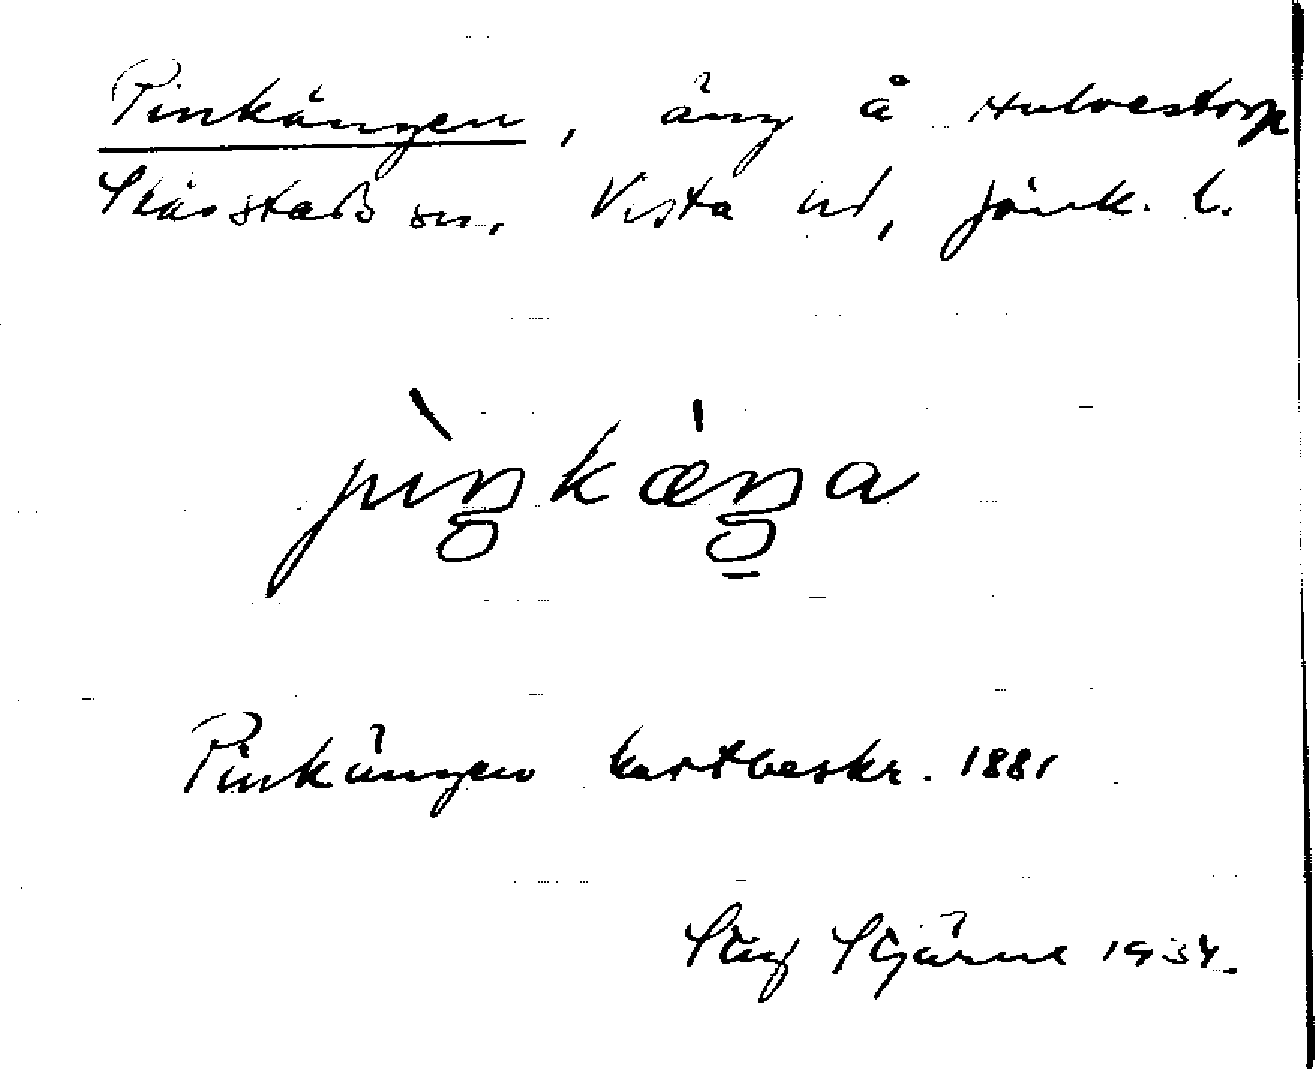 Pinkängen, äng å Hulvestorp
Skärstads sn, Vista hd, Jönk. l.
pìŋkæ̀ŋa
Pinkängen kartbeskr. 1881
Stig Stjärne 1934.